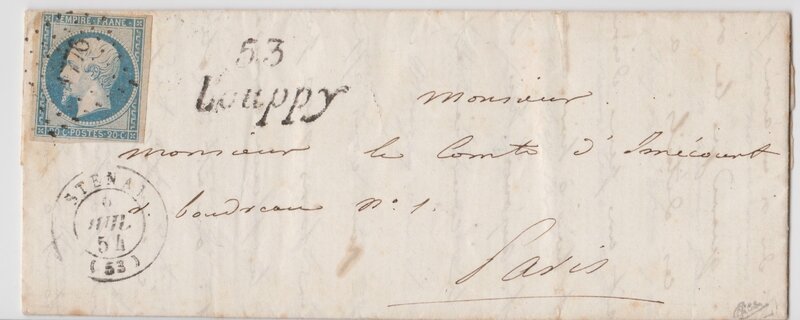 EMPIRE FRANC
20 C POSTES 20 C
53
Louppy
Monsieur
Monsieur le Comte d'Imécourt
r. boudreau N° 1.
Paris
STENAY
6
JUIL.
54
(53)